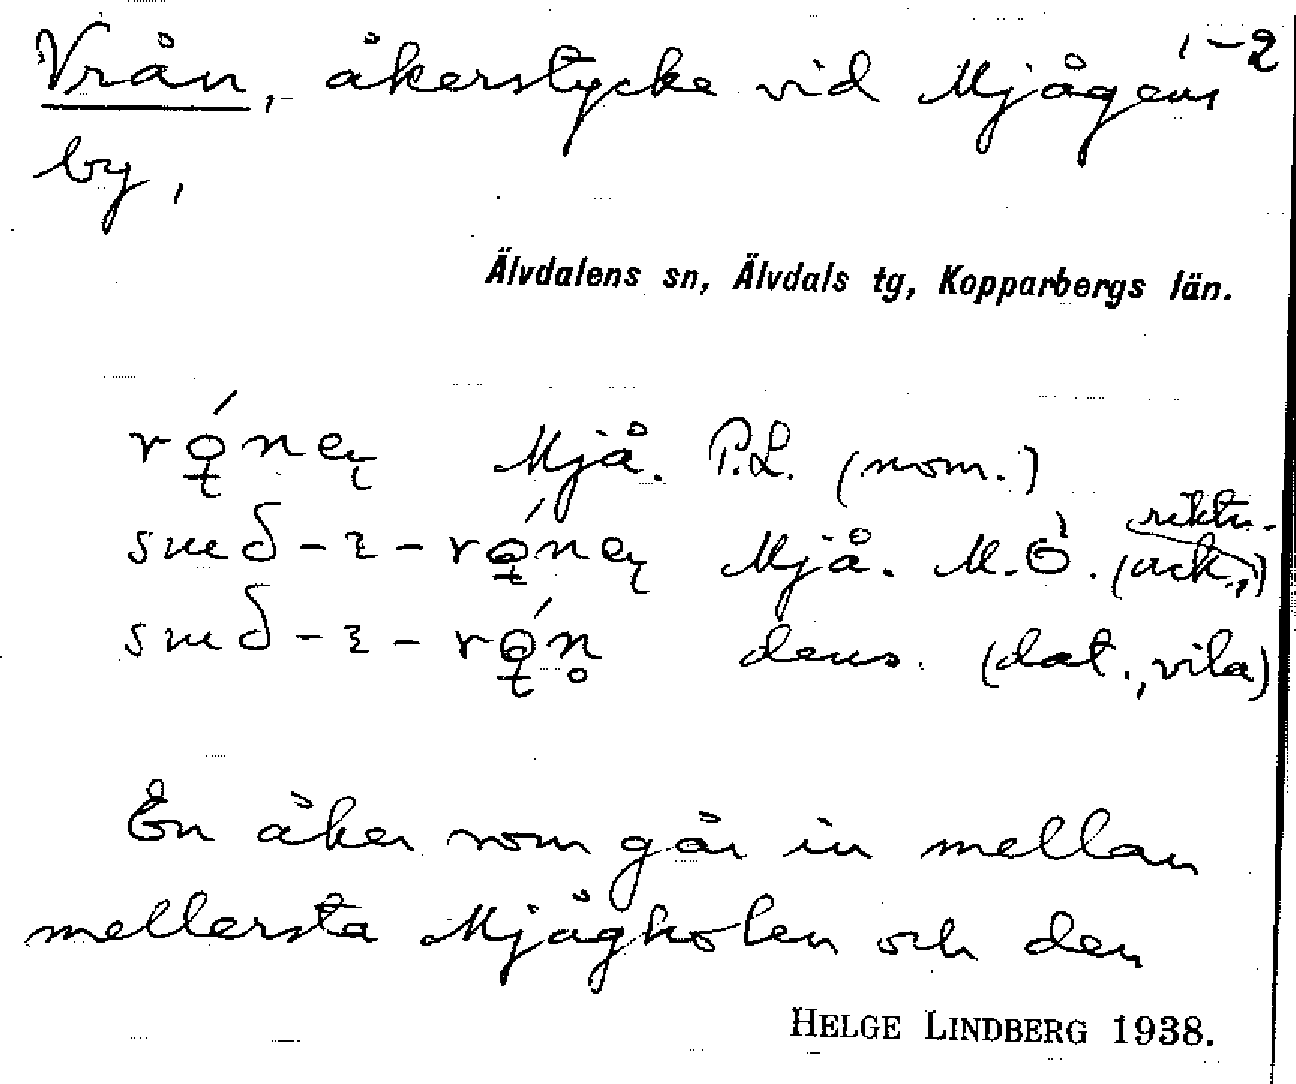 Vrån, åkerstycke vid Mjågens 1-2
by,
Älvdalens sn, Älvdals tg, Kopparbergs län.
Mjå. P.L. (nom.)
Mjå. M.Ö. (ack., riktn.)
dens. (dat., vila)
En åker som går in mellan
mellersta Mjågholen och den
HELGE LINDBERG 1938.